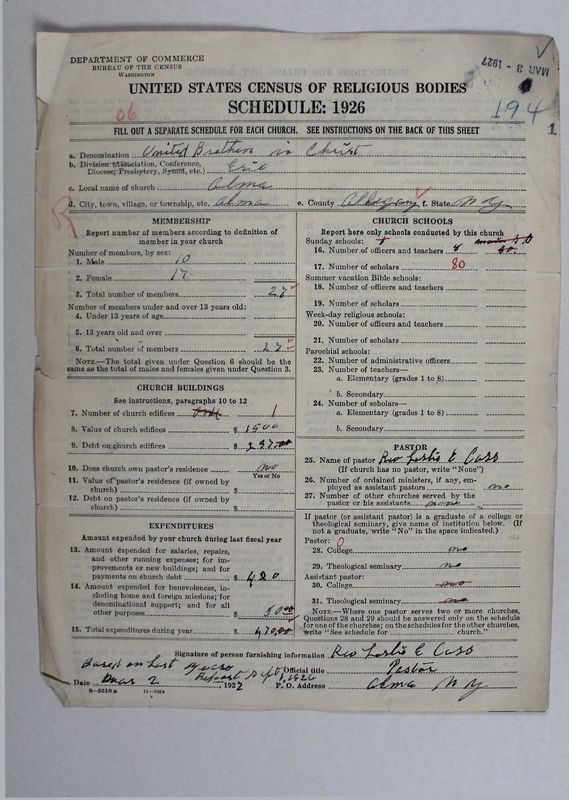 DEPARTMENT OF COMMERCE
BUREAU OF THE CENSUS
WASHINGTON
MAR 3 - 1927
UNITED STATES CENSUS OF RELIGIOUS BODIES
SCHEDULE: 1926
06
194
1
FILL OUT A SEPARATE SCHEDULE FOR EACH CHURCH. SEE INSTRUCTIONS ON THE BACK OF THIS SHEET
a. Denomination United Brethen in Christ
b. Division (Association, Conference, Diocese, Presbytery, Synod, etc.) Erie
c. Local name of church Alma
d. City, town, village, or township, etc. Alma e. County Allegany f. State N Y
R
MEMBERSHIP
Report number of members according to definition of
member in your church
Number of members, by sex:
1. Male 10
2. Female 17
3. Total number of members 27
Number of members under and over 13 years old:
4. Under 13 years of age
5. 13 years old and over
6. Total number of members 27
NOTE.—The total given under Question 6 should be
same as the total of males and females given under Question 3.
CHURCH BUILDINGS
See instructions, paragraphs 10 to 12
7. Number of church edifices one 1
8. Value of church edifices $ 1500
9. Debt on church edifices $ 297.00
10. Does church own pastor's residence no
Yes or No
11. Value of pastor's residence (if owned by
church) $
12. Debt on pastor's residence (if owned by
church) $
EXPENDITURES
Amount expended by your church during last fiscal year
13. Amount expended for salaries, repairs,
and other running expenses; for im-
provements or new buildings; and for
payments on church debt $ 420
14. Amount expended for benevolences, in-
cluding home and foreign missions; for
denominational support; and for all
other purposes $ 50.00
15. Total expenditures during year $ 470.00
CHURCH SCHOOLS
Report here only schools conducted by this church
Sunday schools:
16. Number of officers and teachers 8
17. Number of scholars 80
Summer vacation Bible schools:
18. Number of officers and teachers
19. Number of scholars
Week-day religious schools:
20. Number of officers and teachers
21. Number of scholars
Parochial schools:
22. Number of administrative officers
23. Number of teachers—
a. Elementary (grades 1 to 8)
b. Secondary
24. Number of scholars—
a. Elementary (grades 1 to 8)
b. Secondary
PASTOR
25. Name of pastor Rev Leslie E Cass
(If church has no pastor, write "None")
26. Number of ordained ministers, if any, em-
ployed as assistant pastors no
27. Number of other churches served by the
pastor or his assistants none
If pastor (or assistant pastor) is a graduate of a college or
theological seminary, give name of institution below. (If
not a graduate, write "No" in the space indicated.)
Pastor: 0
28. College no
29. Theological seminary no
Assistant pastor:
30. College no
31. Theological seminary no
NOTE.—Where one pastor serves two or more churches,
Questions 28 and 29 should be answered only on the schedule
for one of the churches; on the schedules for the other churches,
write "See schedule for church."
Signature of person furnishing information Rev Leslie E Cass
Based on Last years Report Sept 1, 1926
Official title Pastor
Date Mar 2 1927 P. O. Address Alma N Y
8—5518a 11—9354